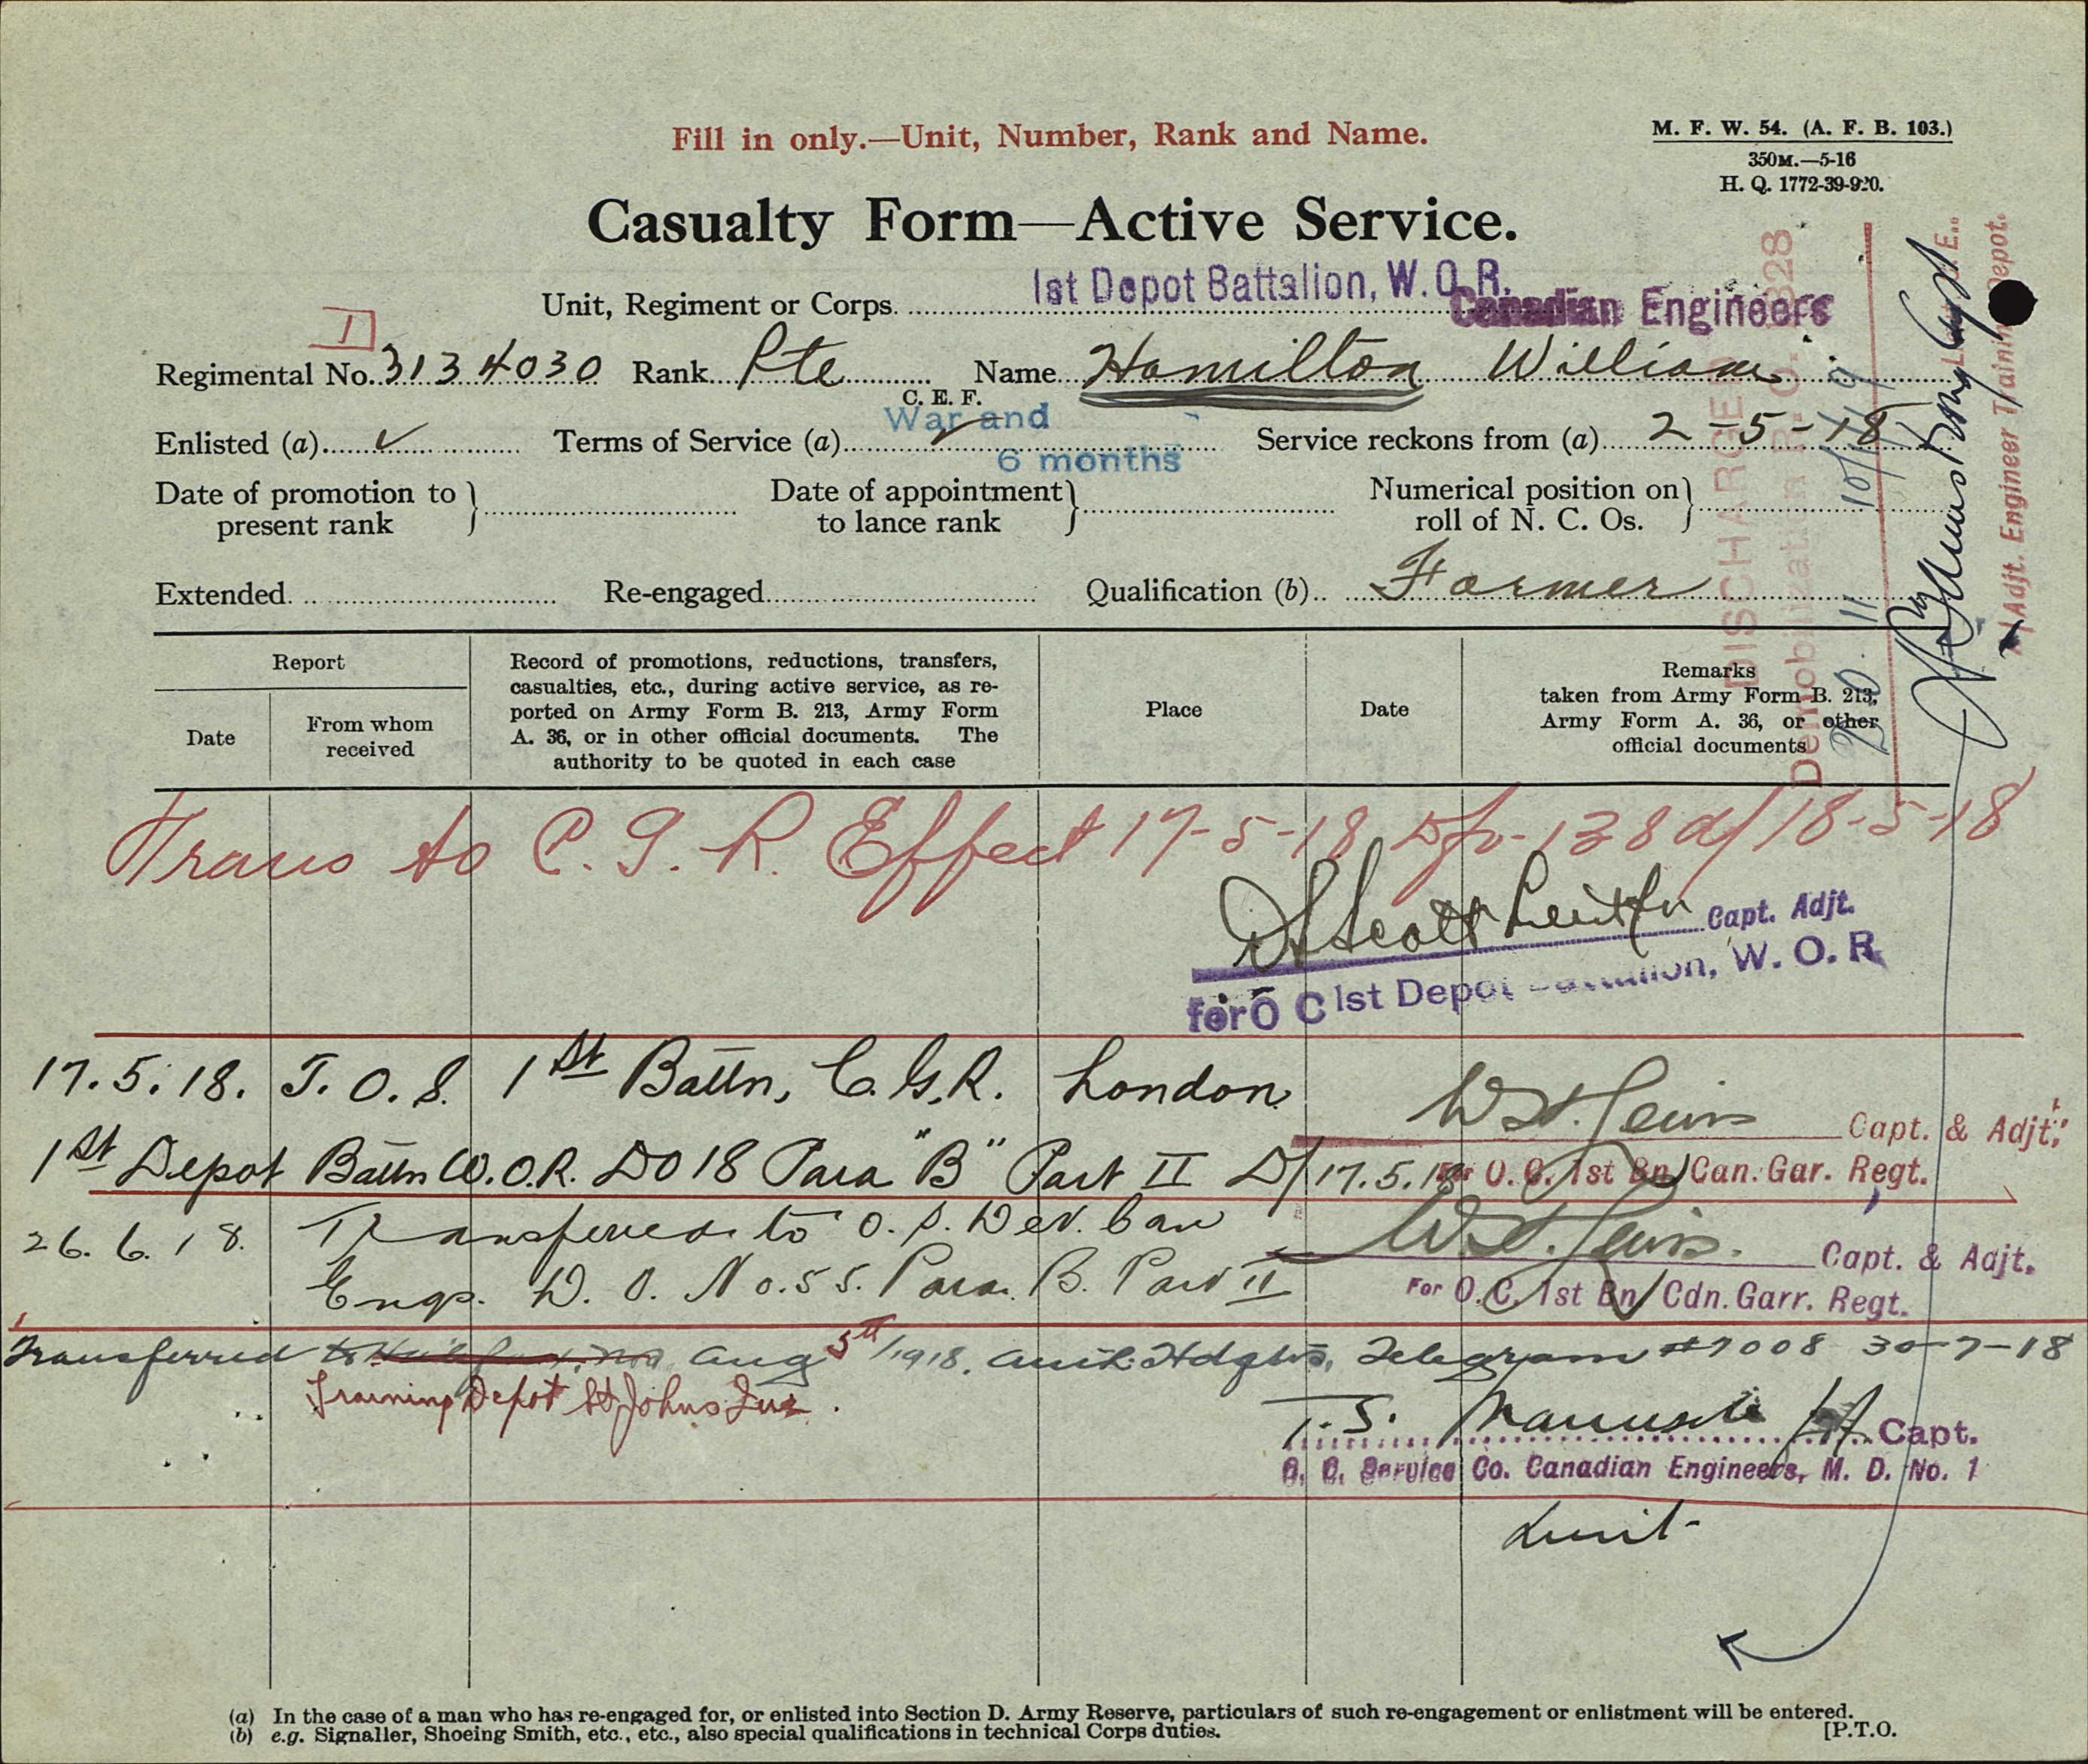 Fill in only.—Unit, Number, Rank and Name.
M. F. W. 54. (A. F. B. 103.)
350M.—5-16
H. Q. 1772-39-920.
Casualty Form—Active Service.
Unit, Regiment or Corps. 1st Depot Battalion, W.O.R. Canadian Engineers
1
Regimental No. 3134030 Rank Pte Name Hamilton William
C. E. F.
War and
Enlisted (a) ✓ Terms of Service (a) ✓ Service reckons from (a) 2-5-18
6 months
Date of promotion to present rank } Date of appointment to lance rank } Numerical position on roll of N. C. Os. }
Extended. Re-engaged Qualification (b) Farmer
DISCHARGED
Demobilization R.O. 1328
Adjt. Engineer Training Depot.
Report
Date
From whom received
Record of promotions, reductions, transfers,
casualties, etc., during active service, as re-
ported on Army Form B. 213, Army Form
A. 36, or in other official documents. The
authority to be quoted in each case
Place
Date
Remarks
taken from Army Form B. 213,
Army Form A. 36, or other
official documents
Trans to C. G. R. Effect 17-5-18 138 d/ 18-5-18
Scott Capt. Adjt.
for O C 1st Depot Battalion, W. O. R.
17.5.18. T. O. S. 1st Battn, C.G.R. London
W Lewis Capt. & Adjt.
1st Depot Battn W.O.R. DO 18 Para "B" Part II D/ 17.5.18
For O. C. 1st Bn Can. Gar. Regt.
26. 6. 18. Transferred to Can
W Lewis. Capt. & Adjt.
Engs. D. O. No. 55. Para. B. Part II
For O. C. 1st Bn Cdn. Garr. Regt.
Transferred to Aug 5th/1918. Hdqtrs, Telegram #7008 30-7-18
Training Depot St Johns Que.
T. S. Capt.
O. C. Service Co. Canadian Engineers, M. D. No. 1
(a) In the case of a man who has re-engaged for, or enlisted into Section D. Army Reserve, particulars of such re-engagement or enlistment will be entered.
(b) e.g. Signaller, Shoeing Smith, etc., etc., also special qualifications in technical Corps duties.
[P.T.O.